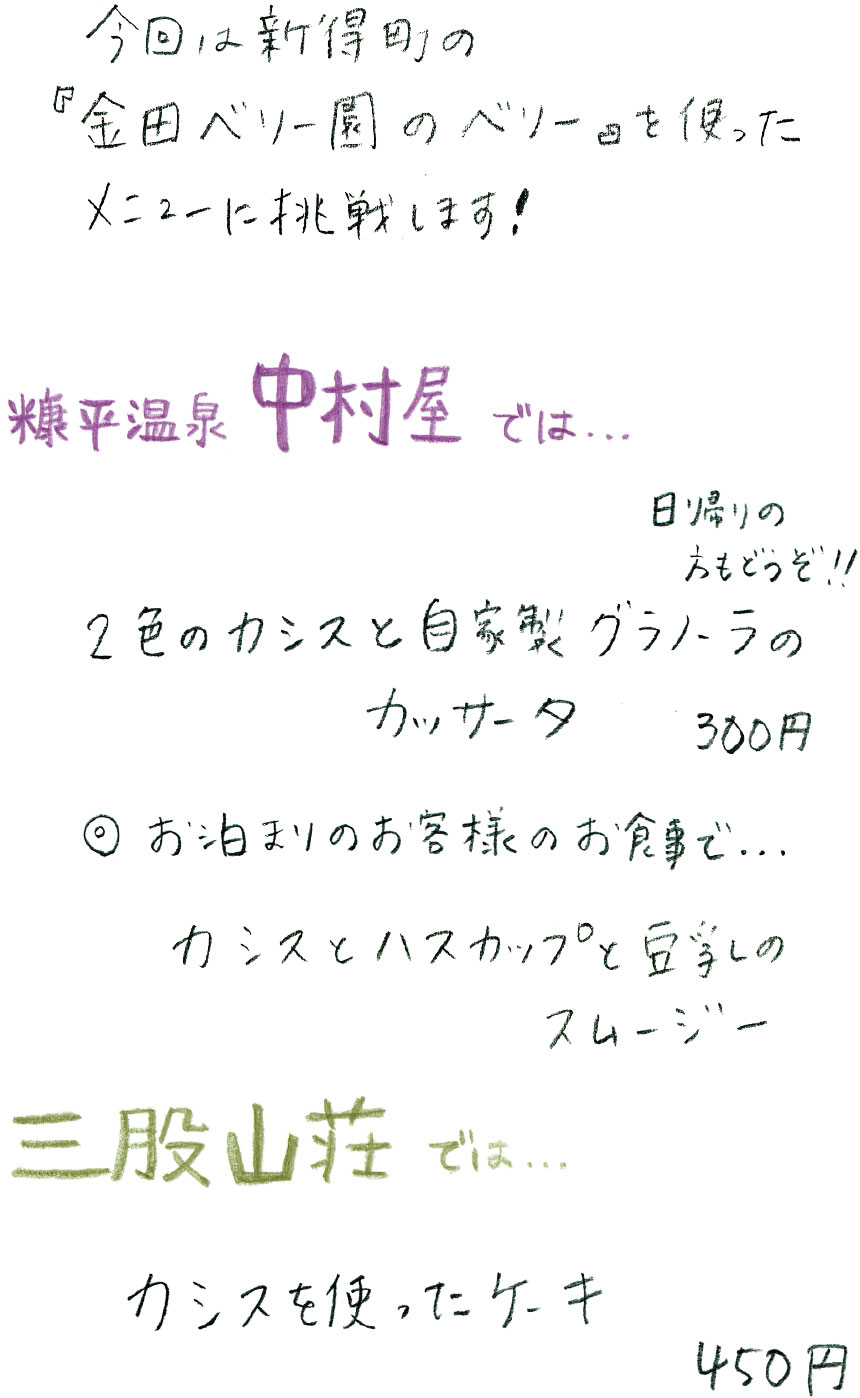 今回は新得町の
『金田ベリー園のベリー』を使った
メニューに挑戦します!
糠平温泉 中村屋 では...
日帰りの
方もどうぞ!!
2色のカシスと自家製グラノーラの
カッサータ 300円
◎ お泊まりのお客様のお食事で...
カシスとハスカップと豆乳の
スムージー
三股山荘 では...
カシスを使ったケーキ
450円